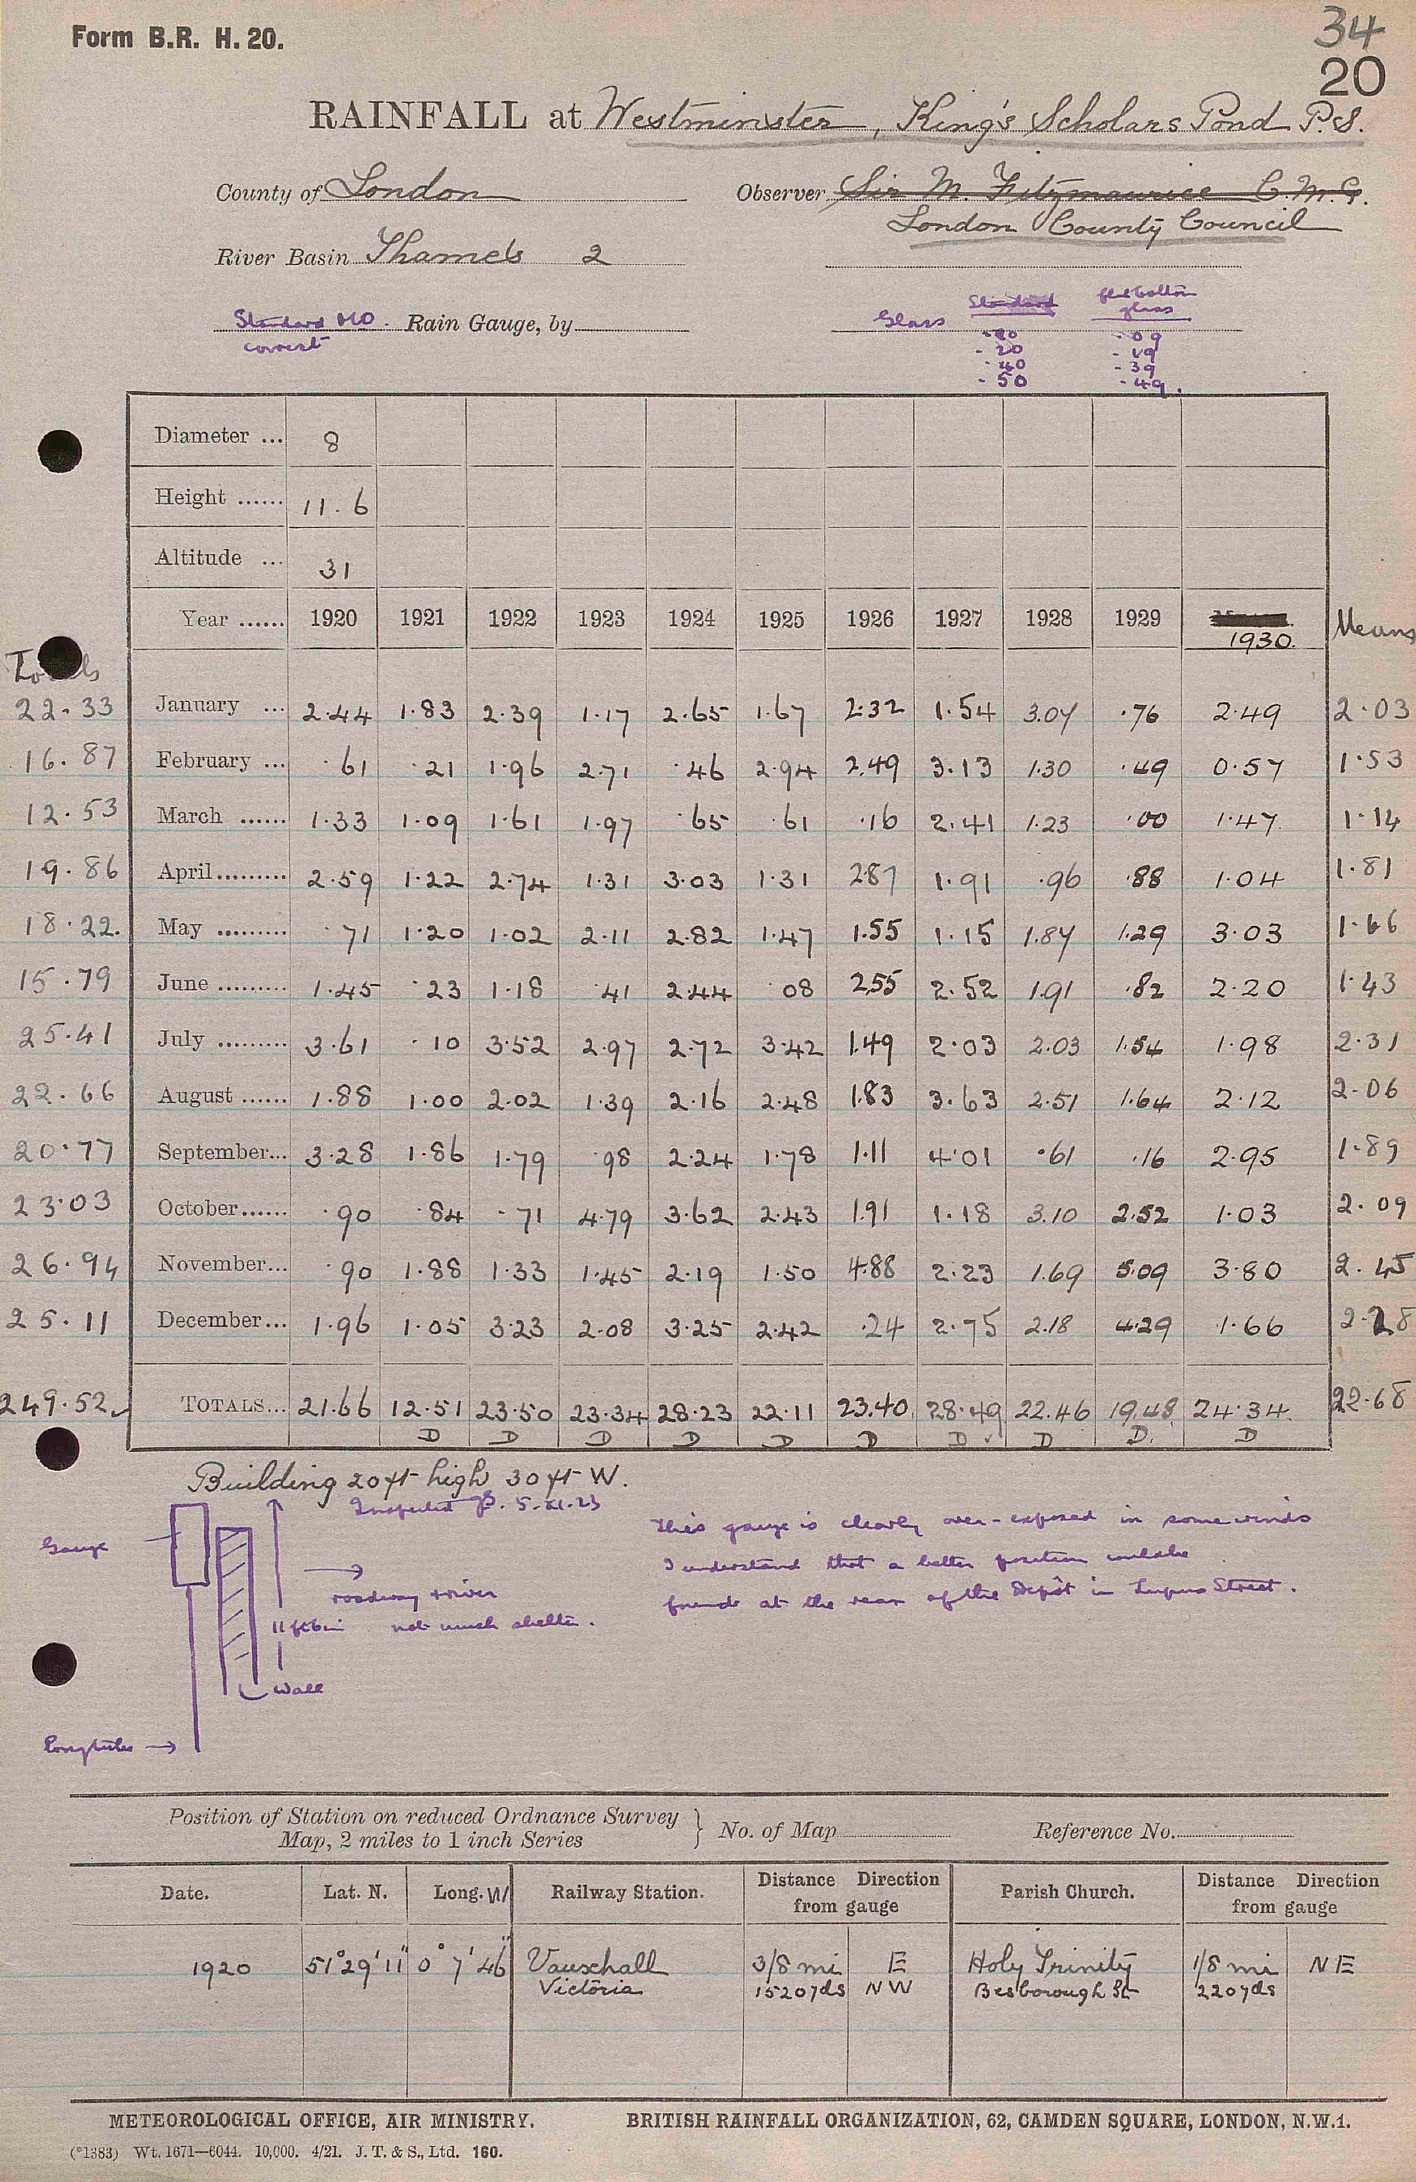 Form B.R. H. 20.
34
20
RAINFALL at Westminster, King's Scholars Pond P.S.
County of London
Observer Sir M. Fitzmaurice C.M.G.
London County Council
River Basin Thames 2
Standard MO. Rain Gauge, by
correct
Glass Standard flat bottom glass
.10 .09
.20 .19
.40 .39
.50 .49.
Diameter ... 8
Height ...... 11.6
Altitude ... 31
Year ...... 1920 1921 1922 1923 1924 1925 1926 1927 1928 1929 1930. Means
Totals
22.33 January ... 2.44 1.83 2.39 1.17 2.65 1.67 2.32 1.54 3.07 .76 2.49 2.03
16.87 February ... .61 .21 1.96 2.71 .46 2.94 2.49 3.13 1.30 .49 0.57 1.53
12.53 March ...... 1.33 1.09 1.61 1.97 .65 .61 .16 2.41 1.23 .00 1.47 1.14
19.86 April ......... 2.59 1.22 2.74 1.31 3.03 1.31 2.87 1.91 .96 .88 1.04 1.81
18.22. May ......... .71 1.20 1.02 2.11 2.82 1.47 1.55 1.15 1.87 1.29 3.03 1.66
15.79 June ......... 1.45 .23 1.18 .41 2.44 .08 2.55 2.52 1.91 .82 2.20 1.43
25.41 July ......... 3.61 .10 3.52 2.97 2.72 3.42 1.49 2.03 2.03 1.54 1.98 2.31
22.66 August ...... 1.88 1.00 2.02 1.39 2.16 2.48 1.83 3.63 2.51 1.64 2.12 2.06
20.77 September... 3.28 1.86 1.79 .98 2.24 1.78 1.11 4.01 .61 .16 2.95 1.89
23.03 October...... .90 .84 .71 4.79 3.62 2.43 1.91 1.18 3.10 2.52 1.03 2.09
26.94 November... .90 1.88 1.33 1.45 2.19 1.50 4.88 2.23 1.69 5.09 3.80 2.45
25.11 December... 1.96 1.05 3.23 2.08 3.25 2.42 .24 2.75 2.18 4.29 1.66 2.28
249.52 TOTALS... 21.66 12.51 23.50 23.34 28.23 22.11 23.40 28.49 22.46 19.48 24.34 22.68
D D D D D D D ✓ D D. D
Building 20ft high 30ft W.
Inspected 5.XI.23
Gauge
roadway + river
11ft 6in not much shelter.
Wall
Long tube →
This gauge is clearly over-exposed in some winds
I understand that a better position could be
found at the rear of the Depôt in Lupus Street.
Position of Station on reduced Ordnance Survey Map, 2 miles to 1 inch Series } No. of Map Reference No.
Date. Lat. N. Long. W Railway Station. Distance Direction from gauge Parish Church. Distance Direction from gauge
1920 51° 29' 11" 0° 7' 46" Vauxhall 3/8 mi E Holy Trinity 1/8 mi NE
Victoria 1520 yds NW Besborough St 220 yds
METEOROLOGICAL OFFICE, AIR MINISTRY. BRITISH RAINFALL ORGANIZATION, 62, CAMDEN SQUARE, LONDON, N.W.1.
(*1383) Wt. 1671—6044. 10,000. 4/21. J. T. & S., Ltd. 160.